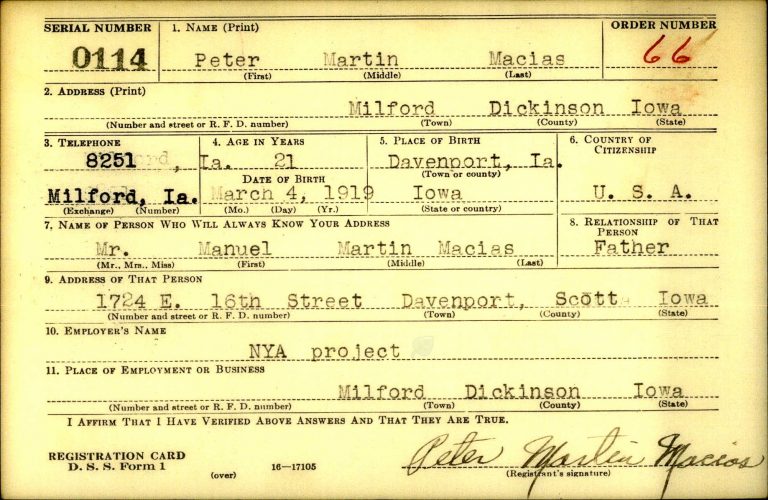 SERIAL NUMBER 1. NAME (Print) ORDER NUMBER
0114 Peter Martin Macias 66
(First) (Middle) (Last)
2. ADDRESS (Print)
Milford Dickinson Iowa
(Number and street or R. F. D. number) (Town) (County) (State)
3. TELEPHONE 4. AGE IN YEARS 5. PLACE OF BIRTH 6. COUNTRY OF CITIZENSHIP
8251 , Ia. 21 Davenport, Ia.
(Town or county)
DATE OF BIRTH
Milford, Ia. March 4, 1919 Iowa U. S. A.
(Exchange) (Number) (Mo.) (Day) (Yr.) (State or country)
7. NAME OF PERSON WHO WILL ALWAYS KNOW YOUR ADDRESS 8. RELATIONSHIP OF THAT PERSON
Mr. Manuel Martin Macias Father
(Mr., Mrs., Miss) (First) (Middle) (Last)
9. ADDRESS OF THAT PERSON
1724 E. 16th Street Davenport, Scott Iowa
(Number and street or R. F. D. number) (Town) (County) (State)
10. EMPLOYER'S NAME
NYA project
11. PLACE OF EMPLOYMENT OR BUSINESS
Milford Dickinson Iowa
(Number and street or R. F. D. number) (Town) (County) (State)
I AFFIRM THAT I HAVE VERIFIED ABOVE ANSWERS AND THAT THEY ARE TRUE.
REGISTRATION CARD
D. S. S. Form 1 (over) 16—17105
Peter Martin Macias
(Registrant's signature)